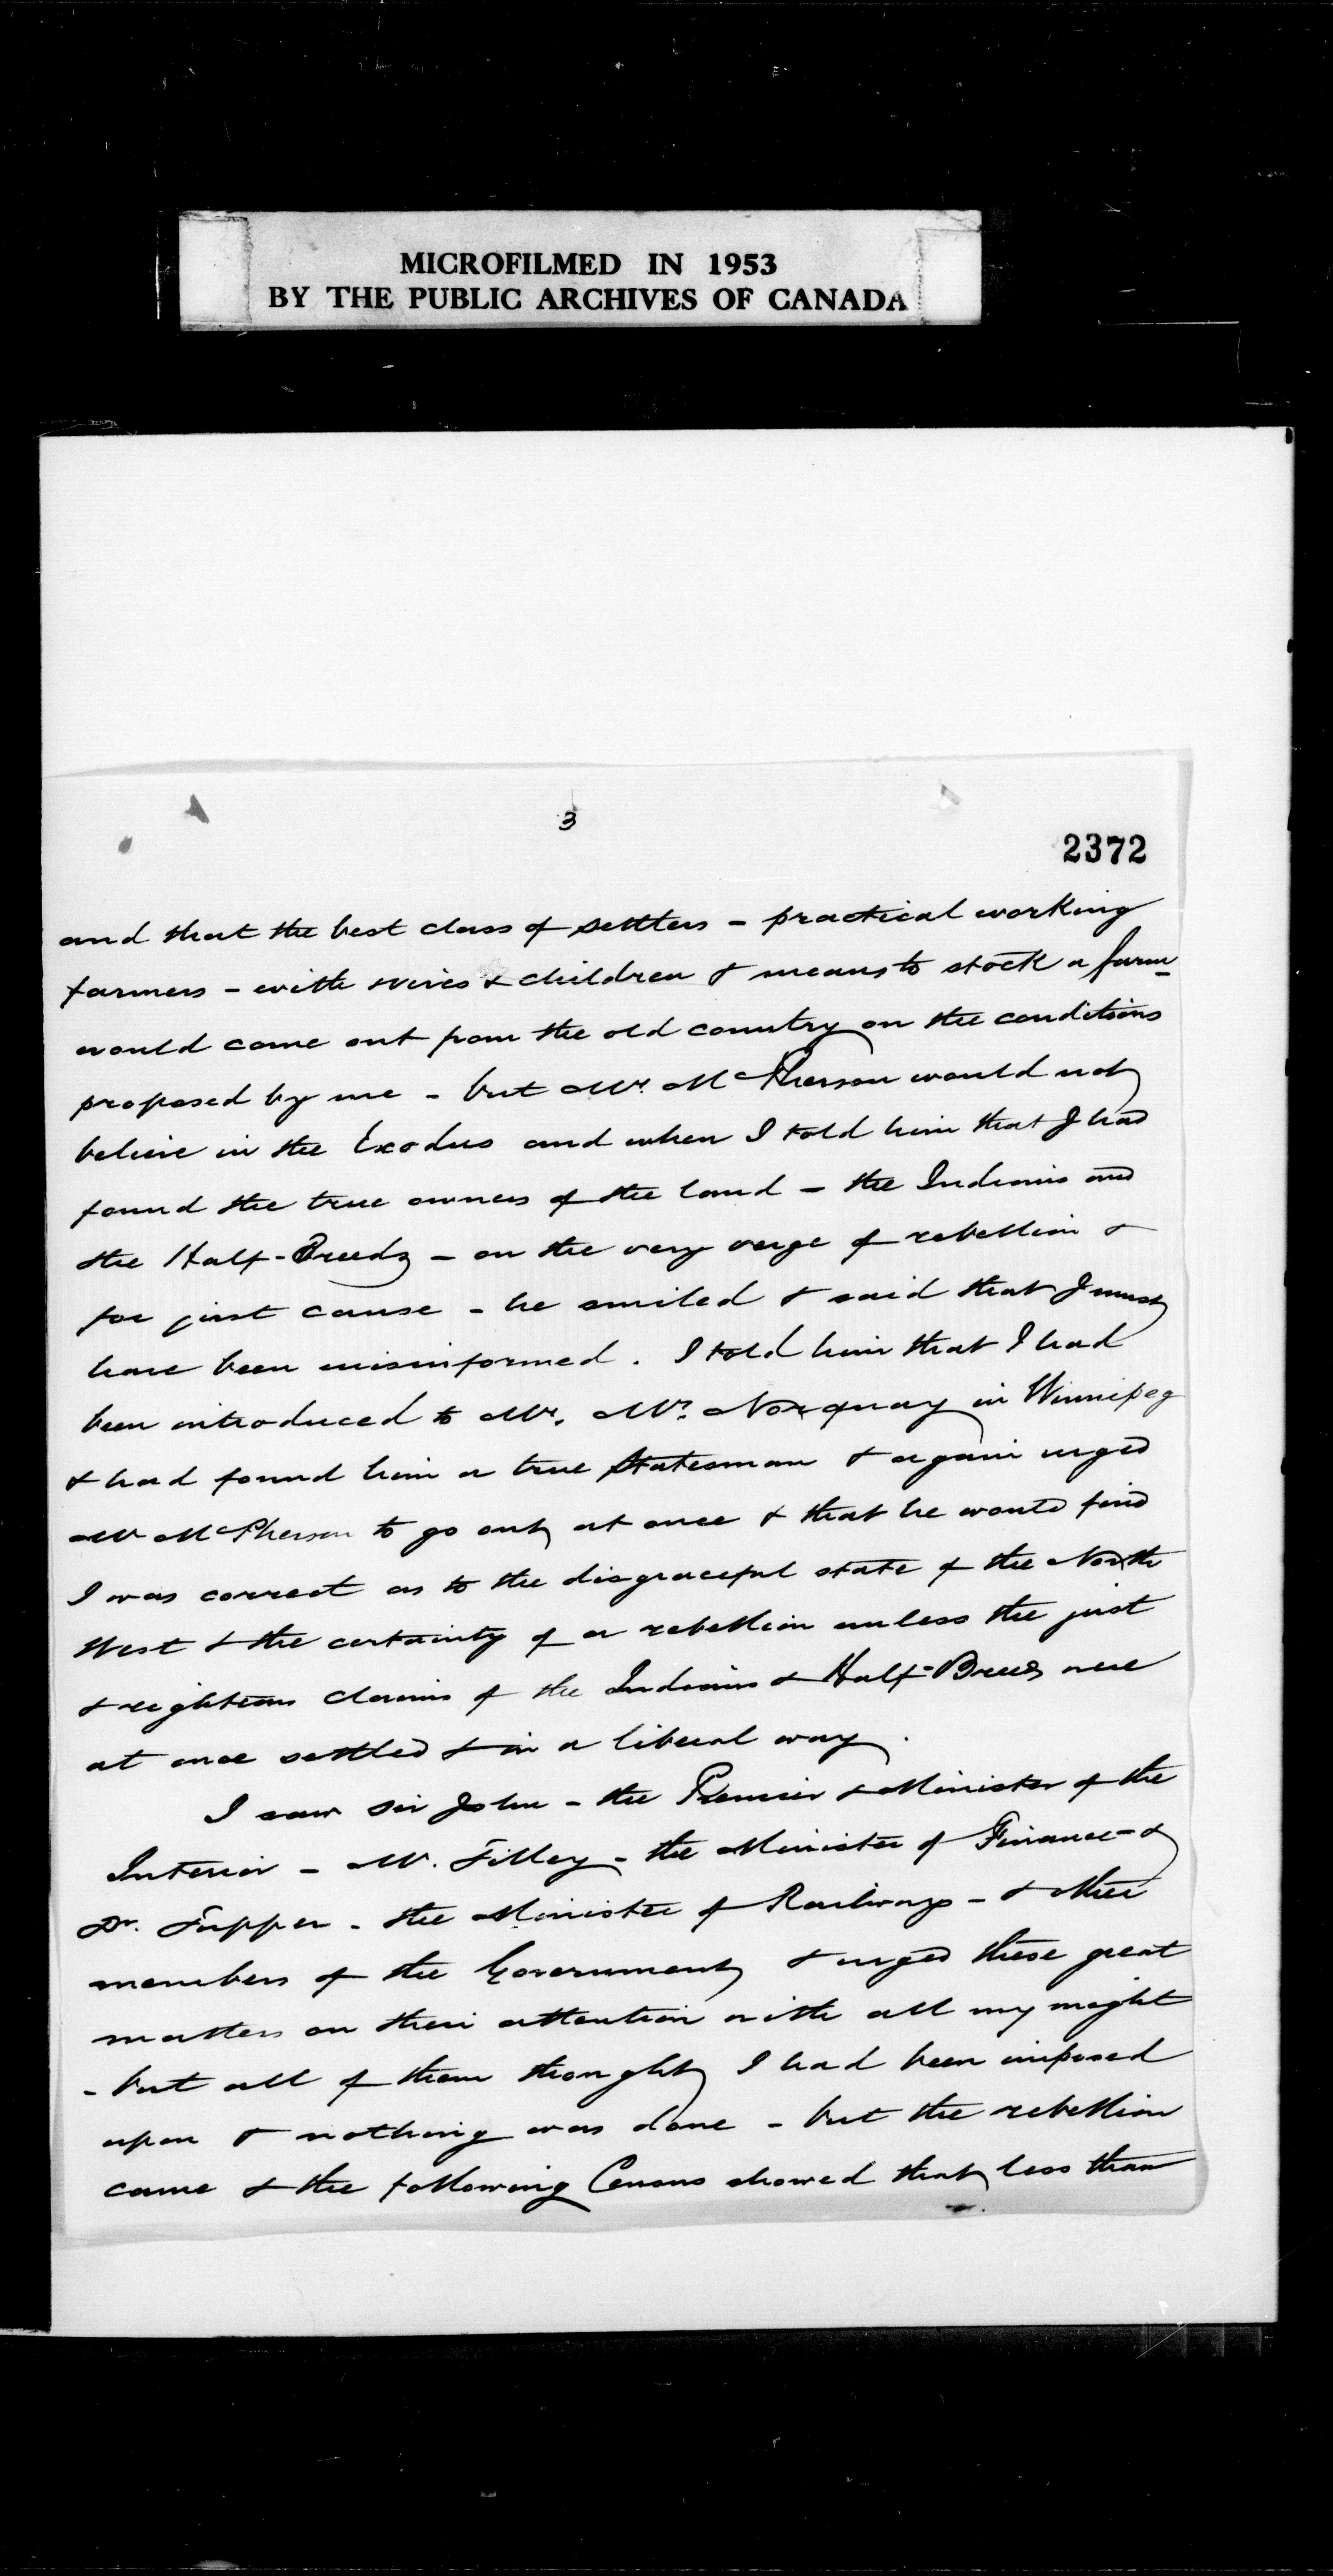 MICROFILMED IN 1953
BY THE PUBLIC ARCHIVES OF CANADA
3
2372
and that the best class of settlers - practical working
farmers - with wives & children & means to stock a farm
would come out from the old country on the conditions
proposed by me - but Mr. McPherson would not
believe in the Exodus and when I told him that I had
found the true owners of the land - the Indians and
the Half-Breeds - on the very verge of rebellion &
for just cause - he smiled & said that I must
have been misinformed. I told him that I had
been introduced to Mr. Norquay in Winnipeg
& had found him a true Statesman & again urged
Mr McPherson to go out at once & that he would find
I was correct as to the disgraceful state of the North
West & the certainty of a rebellion unless the just
& righteous claims of the Indians & Half-Breeds were
at once settled & in a liberal way.
I saw Sir John - the Premier & Minister of the
Interior - Mr. Tilley - the Minister of Finance - &
Dr. Tupper - the Minister of Railways - & other
members of the Government & urged these great
matters on their attention with all my might
- but all of them thought I had been imposed
upon & nothing was done - but the rebellion
came & the following Census showed that less than